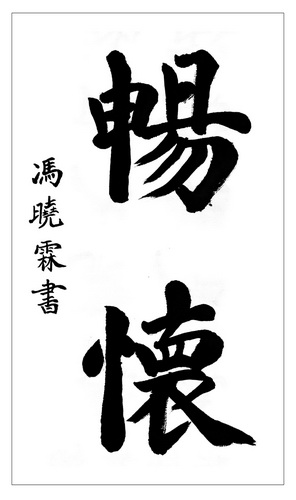 暢懷
馮曉霖書